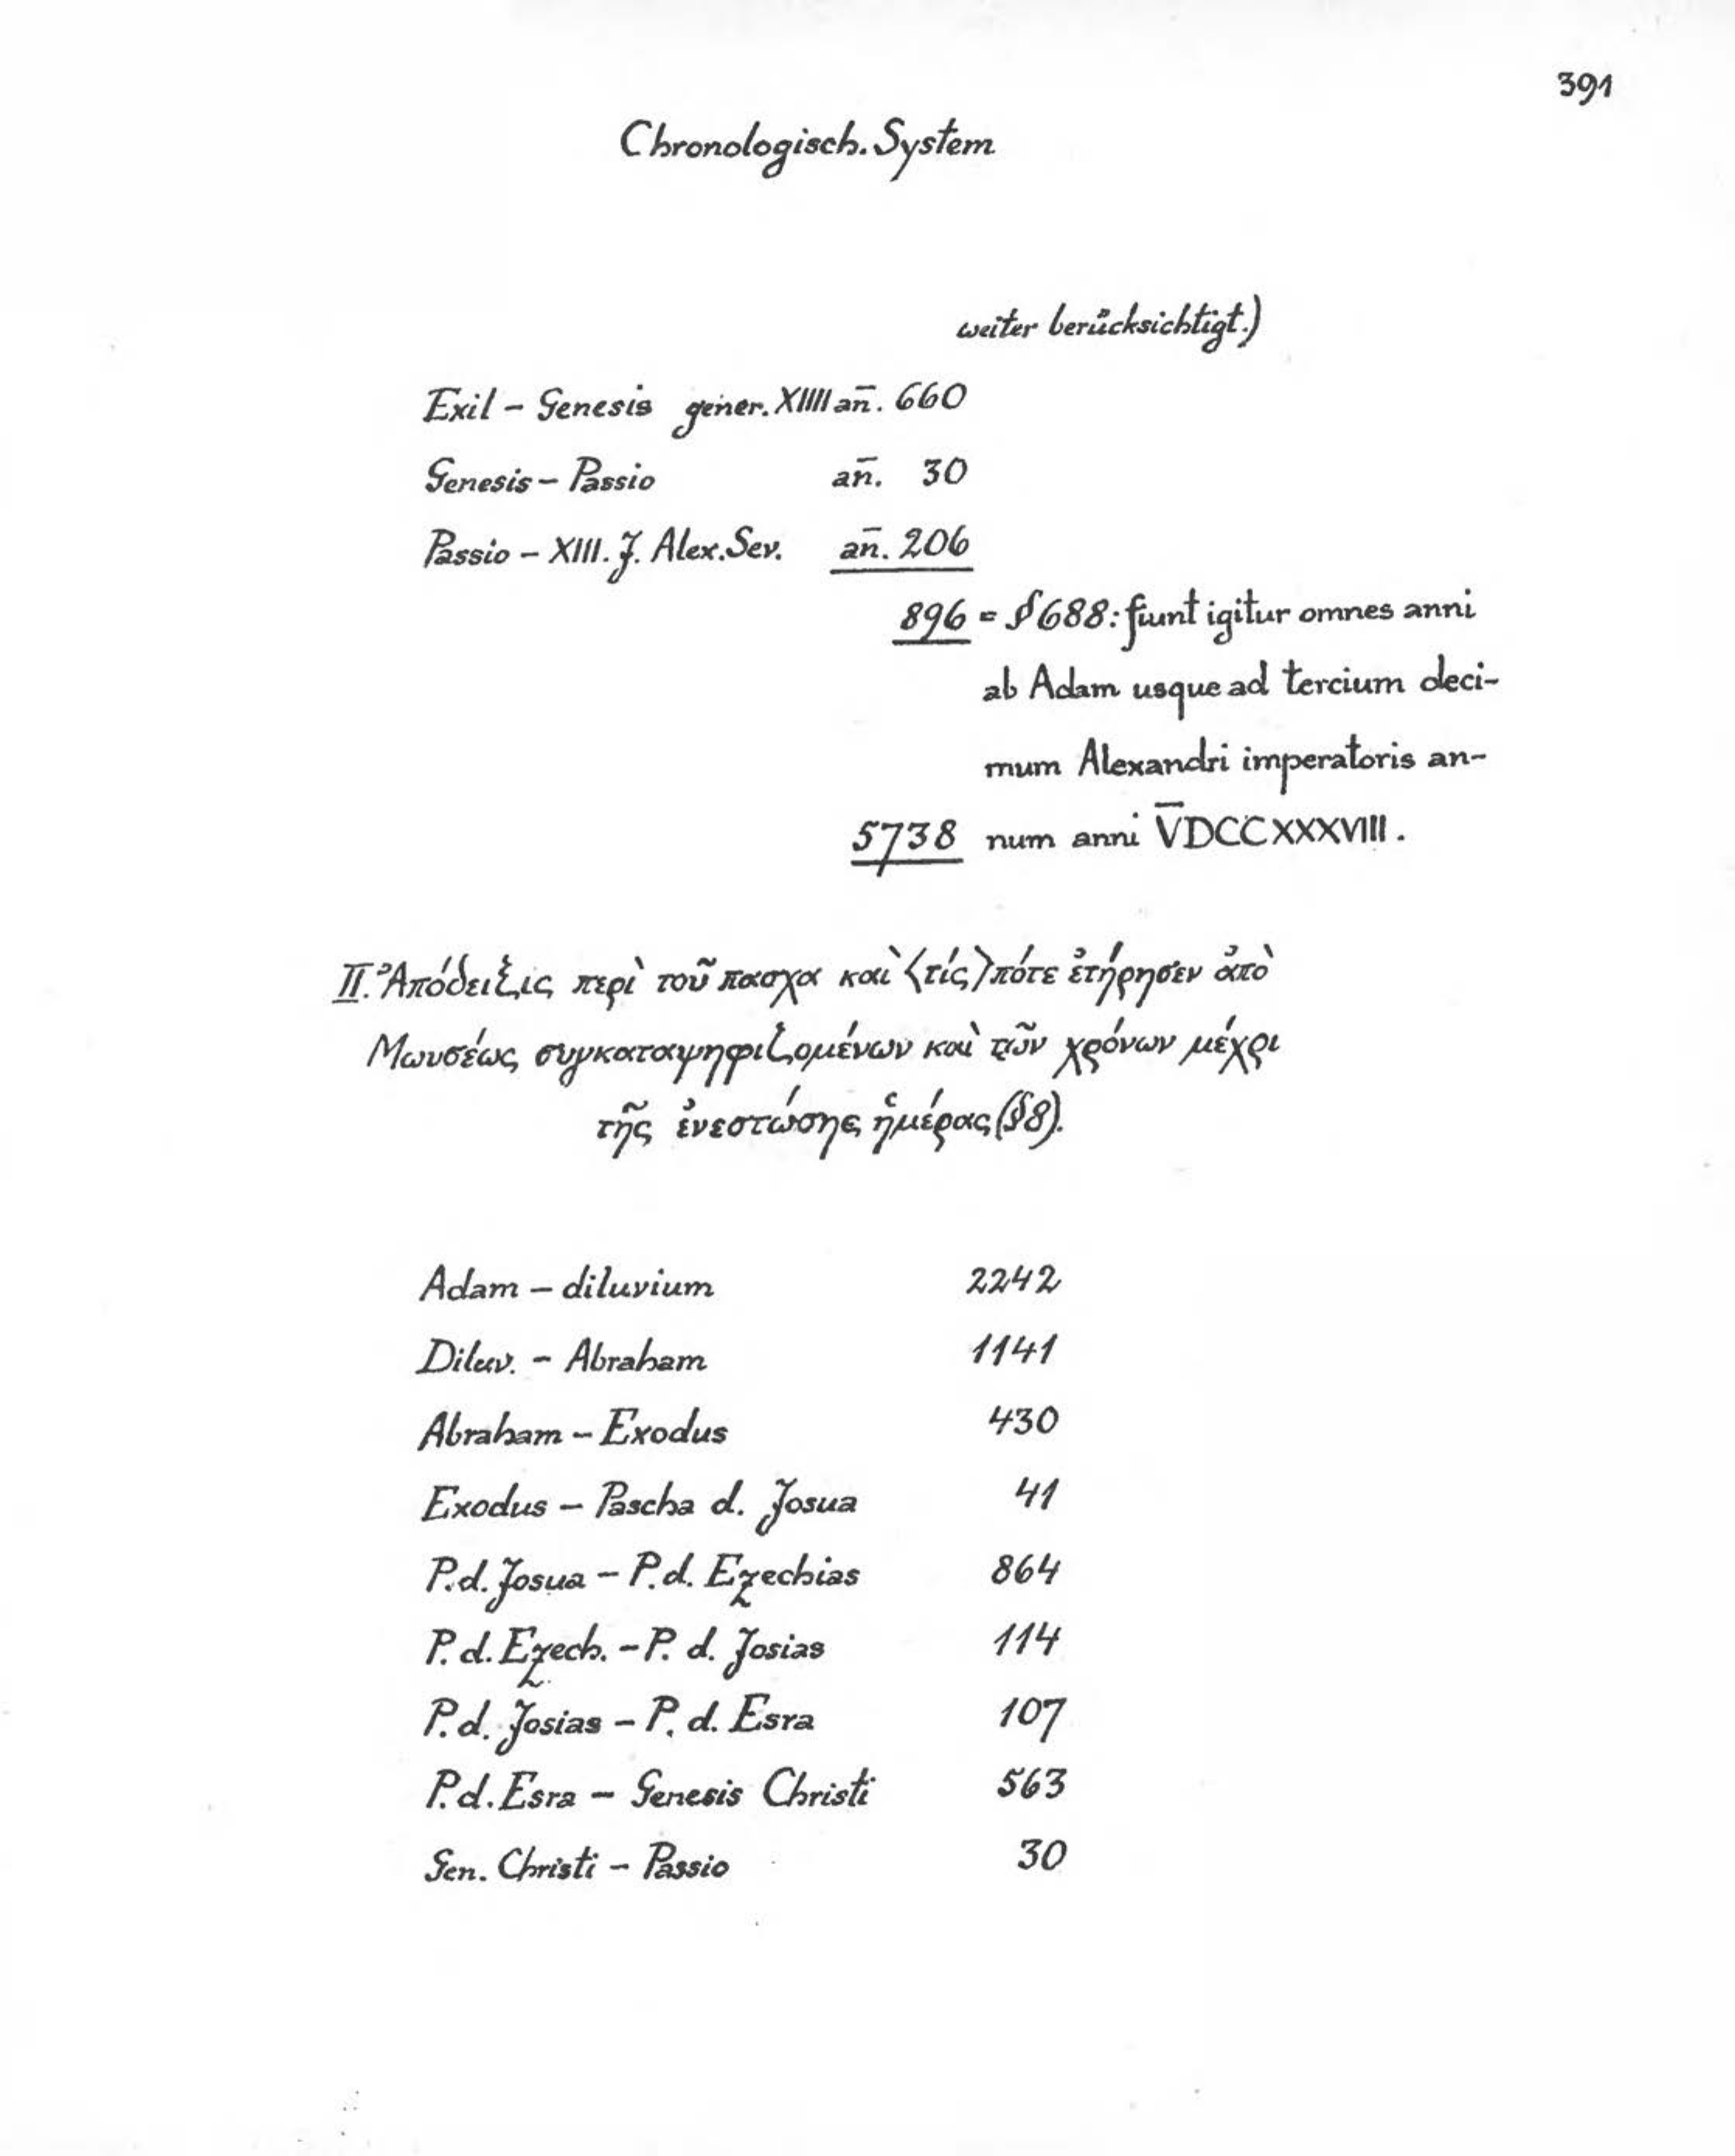 391
Chronologisch. System
weiter berücksichtigt.)
Exil – Genesis gener. XIIII an̄. 660
Genesis – Passio an̄. 30
Passio – XIII. J. Alex. Sev. an̄. 206
896 = § 688: fiunt igitur omnes anni
ab Adam usque ad tercium deci-
mum Alexandri imperatoris an-
5738 num anni V̄DCCXXXVIII.
II. Ἀπόδειξις περὶ τοῦ πασχα καὶ ⟨τίς⟩ πότε ἐτήρησεν ἀπὸ
Μωυσέως συγκαταψηφιζομένων καὶ τῶν χρόνων μέχρι
τῆς ἐνεστώσης ἡμέρας (§8).
Adam – diluvium 2242
Diluv. – Abraham 1141
Abraham – Exodus 430
Exodus – Pascha d. Josua 41
P. d. Josua – P. d. Ezechias 864
P. d. Ezech. – P. d. Josias 114
P. d. Josias – P. d. Esra 107
P. d. Esra – Genesis Christi 563
Gen. Christi – Passio 30